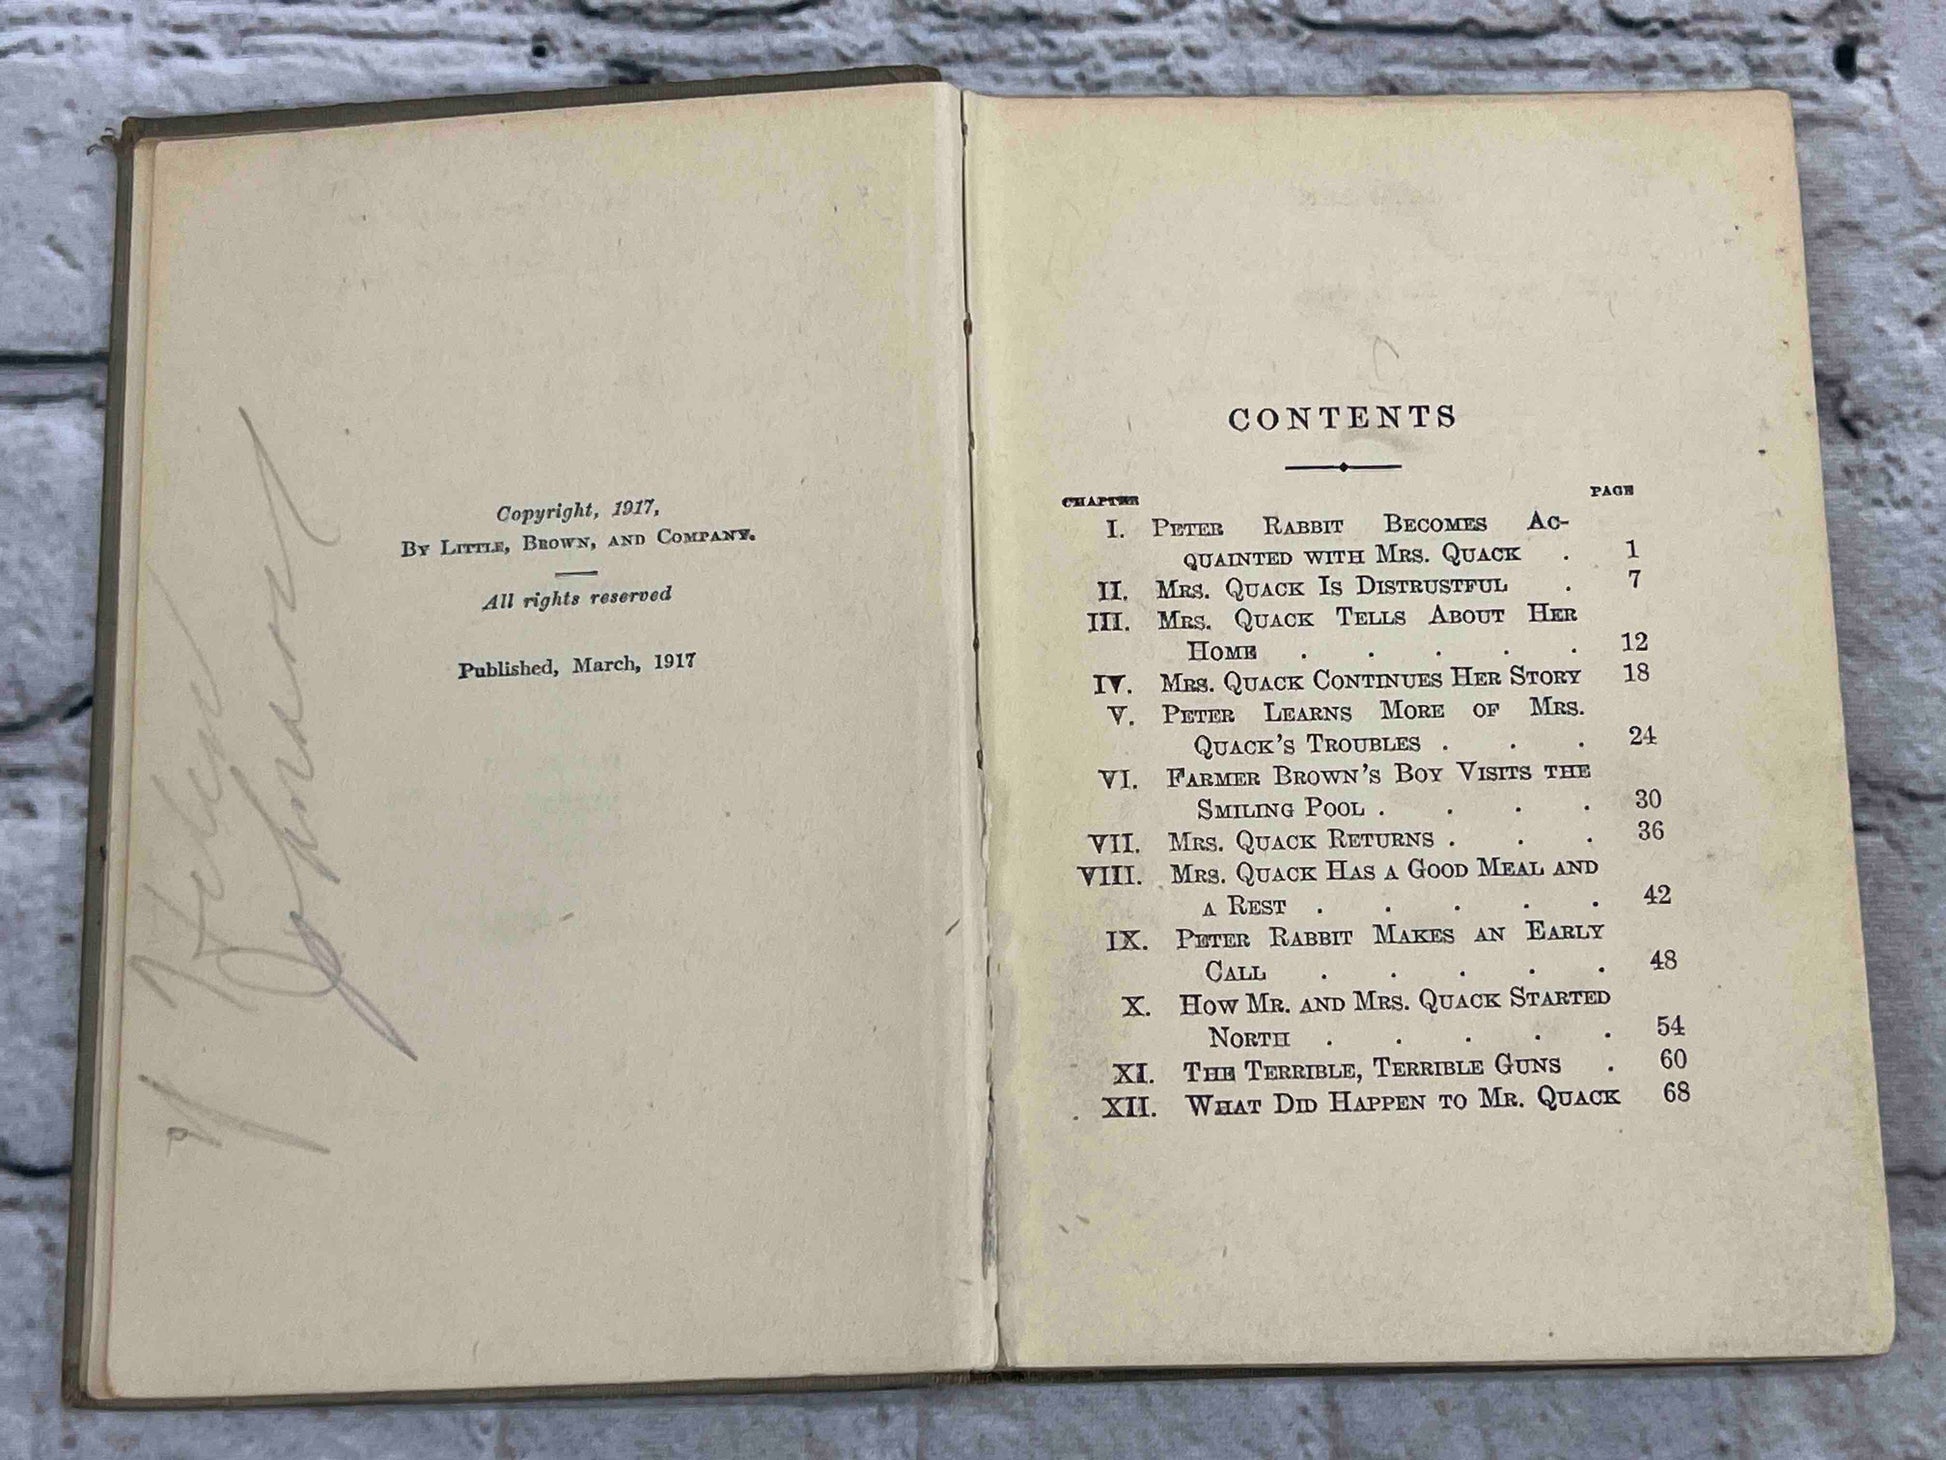 Helene
Johnson
Copyright, 1917,
BY LITTLE, BROWN, AND COMPANY.
All rights reserved
Published, March, 1917
CONTENTS
CHAPTER PAGE
I. PETER RABBIT BECOMES AC-
QUAINTED WITH MRS. QUACK . 1
II. MRS. QUACK IS DISTRUSTFUL . 7
III. MRS. QUACK TELLS ABOUT HER
HOME . . . . . 12
IV. MRS. QUACK CONTINUES HER STORY 18
V. PETER LEARNS MORE OF MRS.
QUACK'S TROUBLES . . . 24
VI. FARMER BROWN'S BOY VISITS THE
SMILING POOL . . . . 30
VII. MRS. QUACK RETURNS . . . 36
VIII. MRS. QUACK HAS A GOOD MEAL AND
A REST . . . . . 42
IX. PETER RABBIT MAKES AN EARLY
CALL . . . . . 48
X. HOW MR. AND MRS. QUACK STARTED
NORTH . . . . . 54
XI. THE TERRIBLE, TERRIBLE GUNS . 60
XII. WHAT DID HAPPEN TO MR. QUACK 68